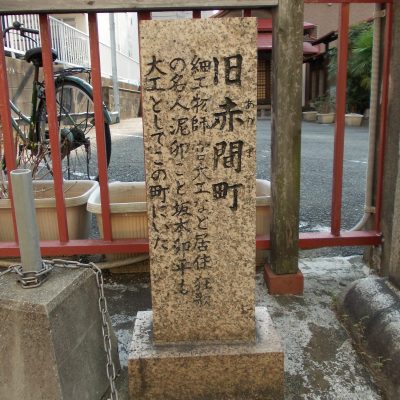 旧赤間町
あかま
細工物師宮大工など居住狂歌
の名人泥卯こと坂本卯平も
大工としてこの町にいた